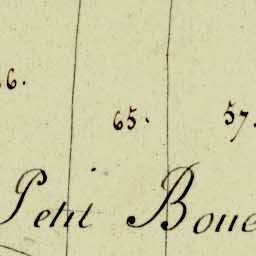 6.
65.
57.
Petit Boue